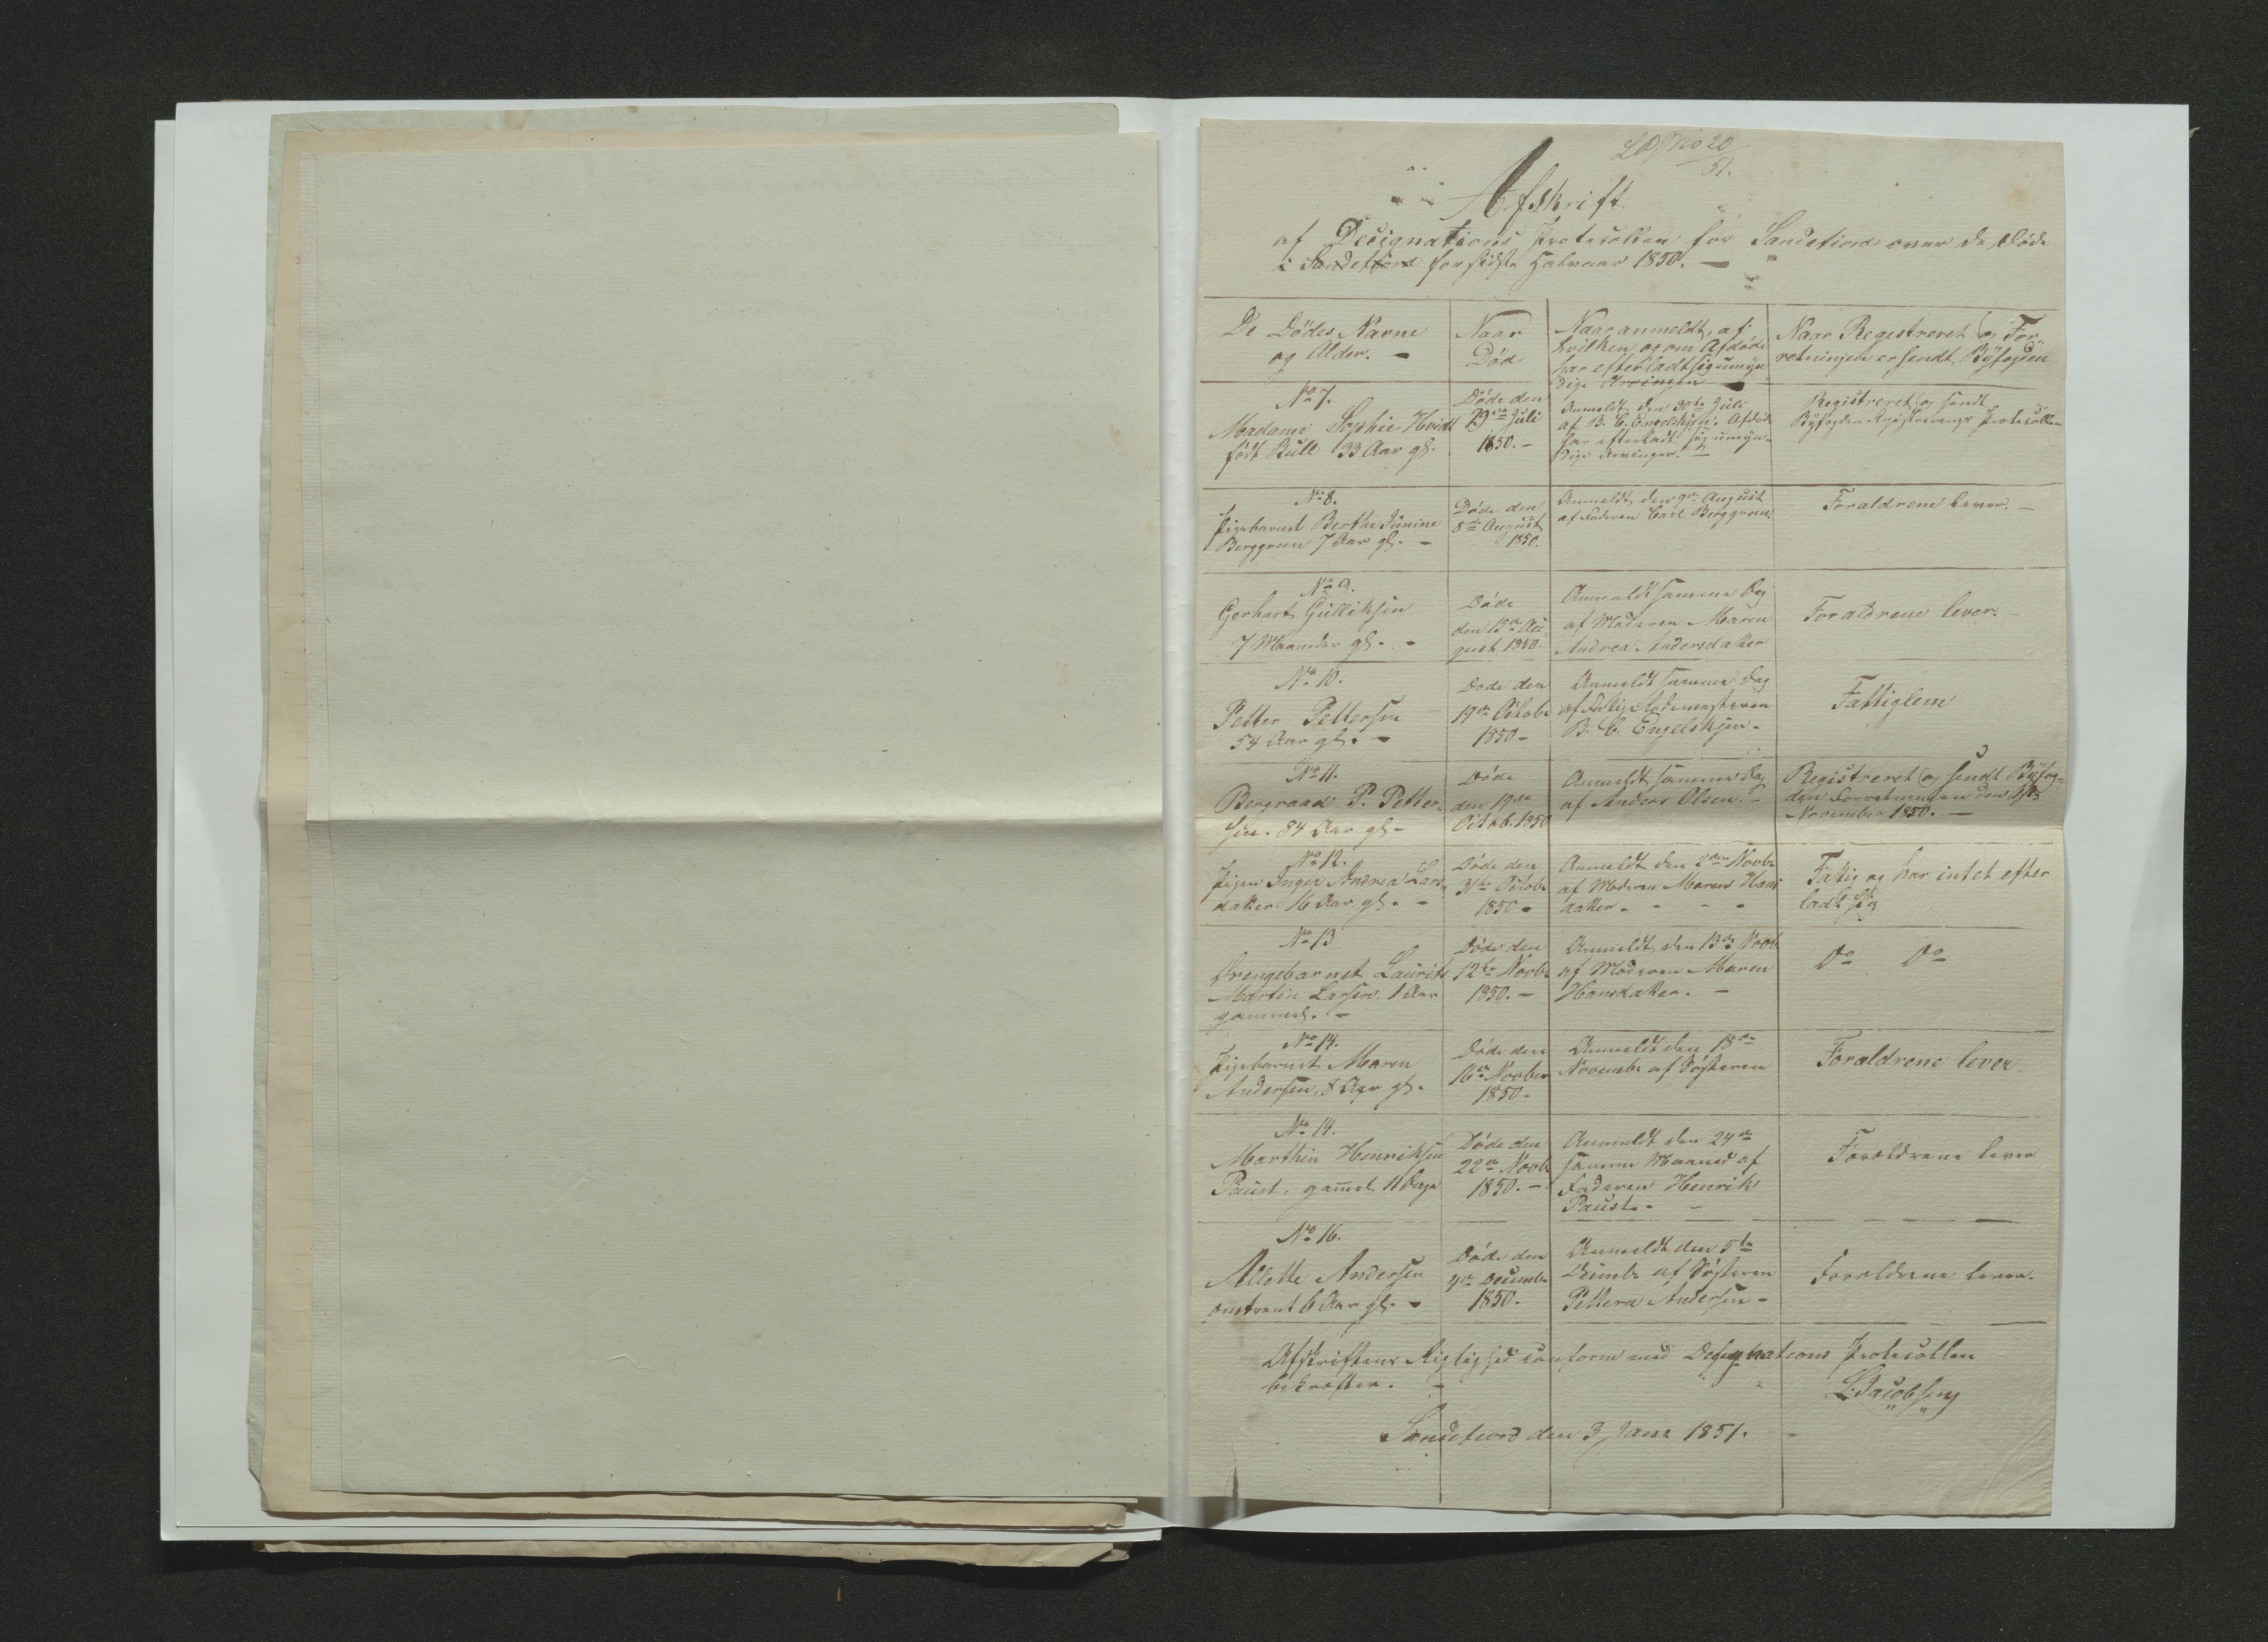 No 20
51.
Afskrift
af Decignations Protocollen for Sandefiord over de Døde
i Sandefiord for sidste Halvaar 1850. –
De Dödes Navne
og Alder. –
Naar
Död
Naar anmeldt, af
hvilken og om Afdøde
har efterladt sig umyn
dige Arvinger –
Naar Registreret og For-
retningen er sendt Byfogden
No 7.
Madame Sophie Hvidt
født Bull 33 Aar gl.
Døde den
29de Juli
1850. –
Anmeldt den 30te Juli
af B. C. Engelskjøn. Afdøde
har efterladt sig umyn-
dige Arvinger. –
Registreret og sendt
Byfogden Registrerings Protocollen
No 8.
Pigebarnet Berthe Junine
Berggreen 7 Aar gl. –
Døde den
8de August
1850.
Anmeldt den 9de August
af Faderen Carl Berggreen
Foraldrene lever. –
No 9.
Gerhart Gulliksen
7 Maaneder gl. –
Døde
den 15de Au
gust 1850.
Anmeldt samme Dag
af Moderen Maren
Andrea Andersdatter
Foraldrene lever. –
No 10.
Petter Pettersen
54 Aar gl. –
Døde den
19de Octobr
1850 –
Anmeldt samme Dag
af
B. C. Engelskjøn –
Fattiglem
No 11.
Bergraad P. Petter
sen. 84 Aar gl –
Døde
den 19de
Octob. 1850
Anmeldt samme Dag
af Anders Olsen. –
Registreret og sendt Byfog-
den Forretningen den
November 1850. –
No 12.
Pigen Inger Andrea Lars
datter 16 Aar gl. –
Døde den
31te Octobr
1850 –
Anmeldt den 2den Novbr
af Moderen Maren Hans
datter – – – –
Fatig og har intet efter
ladt sig
No 13
Drengebarnet Laurits
Martin Larsen. 1 Aar
gammel. –
Døde den
12te Novbr
1850. –
Anmeldt den 13de Novb
af Moderen Maren
Hansdatter. –
Do Do
No 14.
Pigebarnet Maren
Andersen, 8 Aar gl.
Døde den
16de Novber
1850 –
Anmeldt den 18de
Novembr af Søsteren
Foraldrene lever
No 14.
Marthin Henriksen
Paust, gamel 11 Dage
Døde den
22de Novb
1850. –
Anmeldt den 24de
samme Maaned af
Faderen Henrik
Paust. –
Foraldrene lever
No 16.
Mlette Andersen
omtrent 6 Aar gl. –
Døde den
4de Decembr
1850.
Anmeldt den 5te
Decembr af Søsteren
Pettera Andersen –
Foraldrene lever.
Afskriftens Rigtighed conform med Designations Protocollen
bekræfter. –
L. Jacobsen
Sandefiord den 3 Janr 1851. –